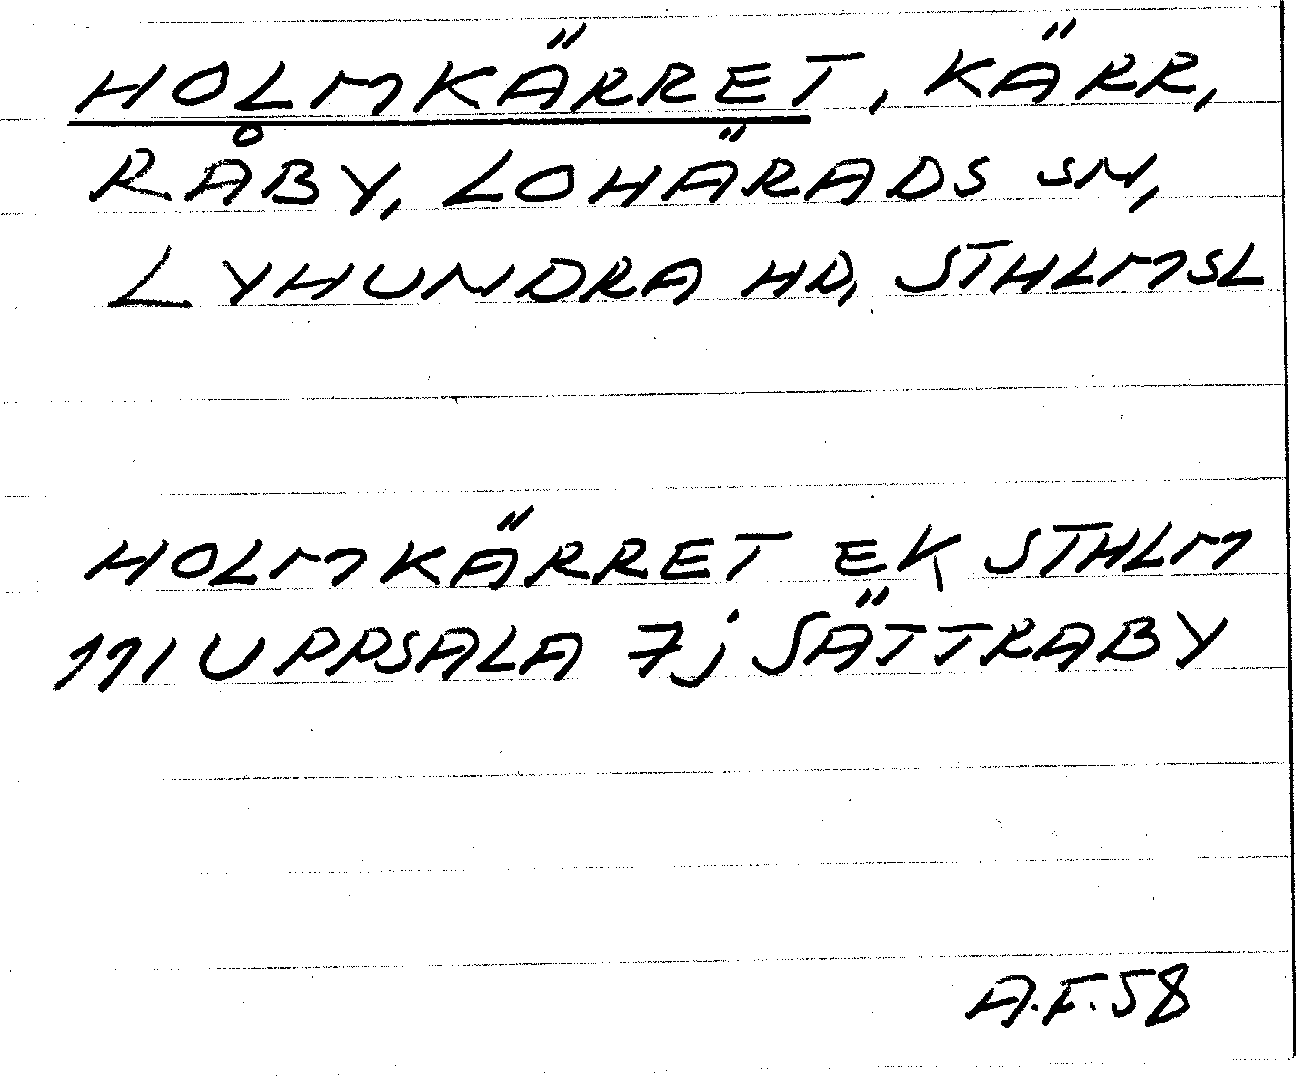 HOLMKÄRRET, KÄRR,
RÅBY, LOHÄRADS SN,
LYHUNDRA HD, STHLMSL
HOLMKÄRRET EK STHLM
111 UPPSALA 7j SÄTTRABY
A.F.58